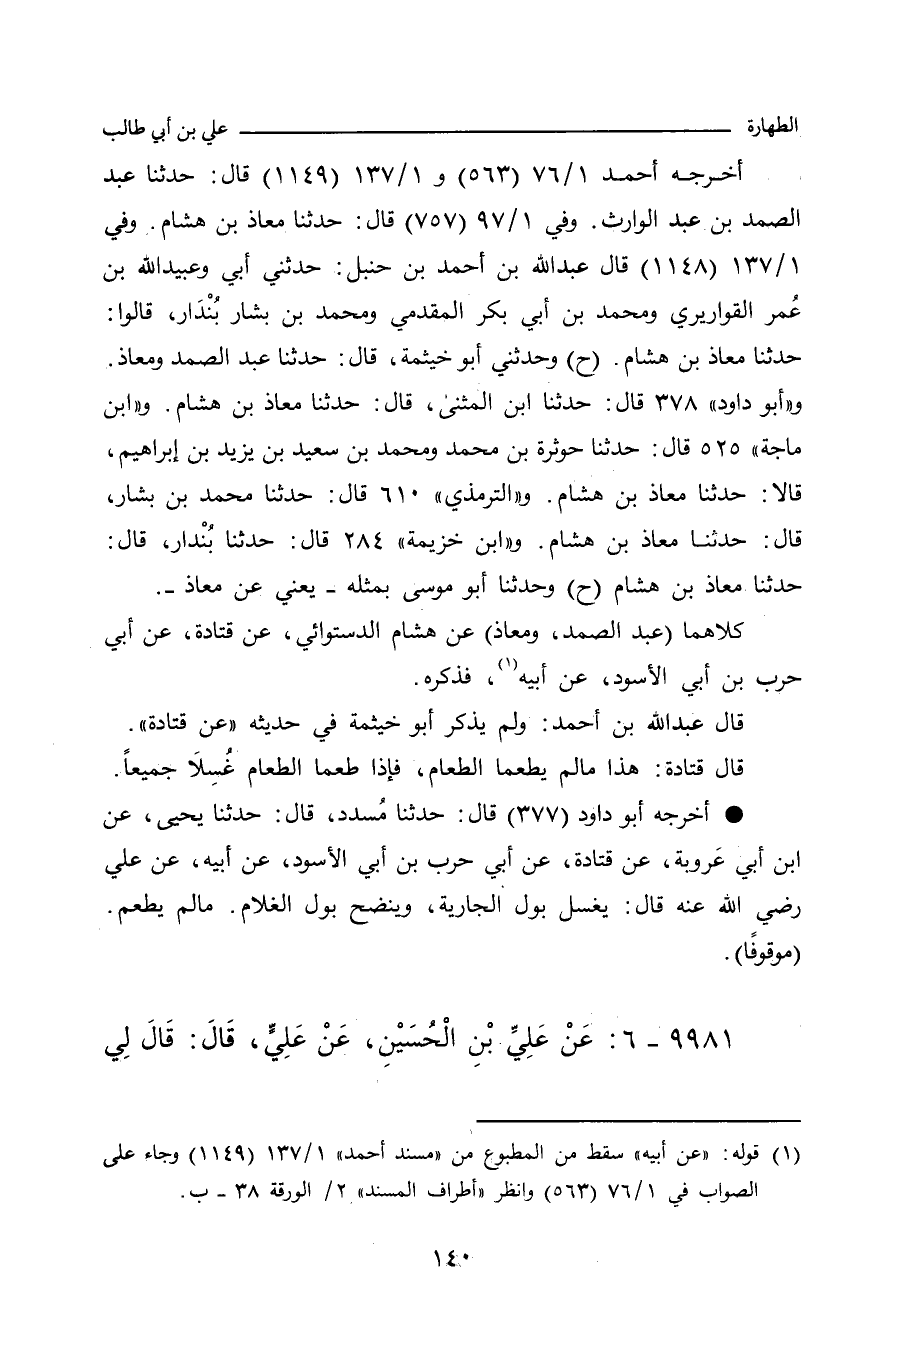 الطهارة ــــــــــــــــ علي بن أبي طالب
أخرجه أحمد ١/٧٦ (٥٦٣) و ١/١٣٧ (١١٤٩) قال: حدثنا عبد
الصمد بن عبد الوارث. وفي ١/٩٧ (٧٥٧) قال: حدثنا معاذ بن هشام. وفي
١/١٣٧ (١١٤٨) قال عبدالله بن أحمد بن حنبل: حدثني أبي وعبيدالله بن
عُمر القواريري ومحمد بن أبي بكر المقدمي ومحمد بن بشار بُنْدَار، قالوا:
حدثنا معاذ بن هشام. (ح) وحدثني أبو خيثمة، قال: حدثنا عبد الصمد ومعاذ.
و«أبو داود» ٣٧٨ قال: حدثنا ابن المثنىٰ، قال: حدثنا معاذ بن هشام. و«ابن
ماجة» ٥٢٥ قال: حدثنا حوثرة بن محمد ومحمد بن سعيد بن يزيد بن إبراهيم،
قالا: حدثنا معاذ بن هشام. و«الترمذي» ٦١٠ قال: حدثنا محمد بن بشار،
قال: حدثنا معاذ بن هشام. و«ابن خزيمة» ٢٨٤ قال: حدثنا بُنْدار، قال:
حدثنا معاذ بن هشام (ح) وحدثنا أبو موسى بمثله ـ يعني عن معاذ ـ.
كلاهما (عبد الصمد، ومعاذ) عن هشام الدستوائي، عن قتادة، عن أبي
حرب بن أبي الأسود، عن أبيه(١)، فذكره.
قال عبدالله بن أحمد: ولم يذكر أبو خيثمة في حديثه «عن قتادة».
قال قتادة: هذا مالم يطعما الطعام، فإذا طعما الطعام غُسِلَا جميعاً.
● أخرجه أبو داود (٣٧٧) قال: حدثنا مُسدد، قال: حدثنا يحيى، عن
ابن أبي عَروبة، عن قتادة، عن أبي حرب بن أبي الأسود، عن أبيه، عن علي
رضي الله عنه قال: يغسل بول الجارية، وينضح بول الغلام. مالم يطعم.
(موقوفًا).
٩٩٨١ ـ ٦: عَنْ عَلِيِّ بْنِ الْحُسَيْنِ، عَنْ عَلِيٍّ، قَالَ: قَالَ لِي
(١) قوله: «عن أبيه» سقط من المطبوع من «مسند أحمد» ١/١٣٧ (١١٤٩) وجاء على
الصواب في ١/٧٦ (٥٦٣) وانظر «أطراف المسند» ٢/ الورقة ٣٨ ـ ب.
١٤٠